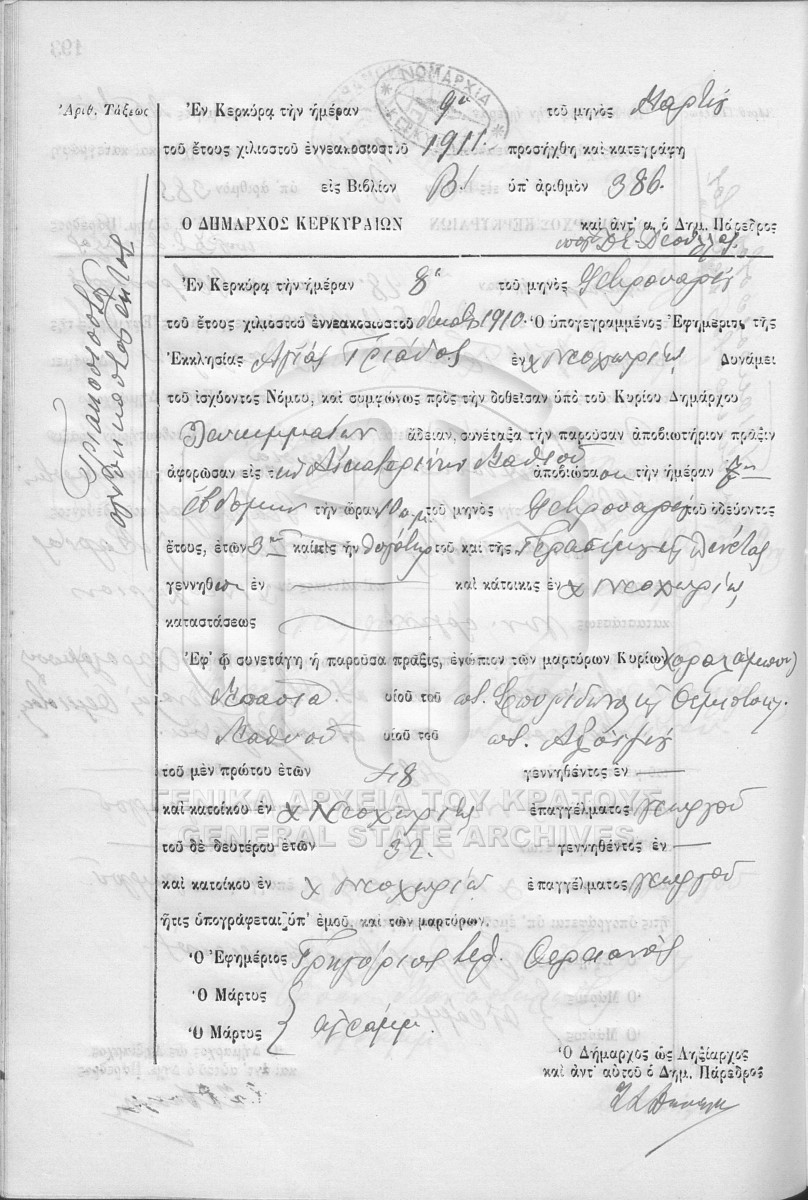 ΝΟΜΑΡΧΙΑ
Ἀριθ. Τάξεως
Τριακοσιοστὸς ὀγδοηκοστὸς ἕκτος
Ἐν Κερκύρᾳ τὴν ἡμέραν 9ην τοῦ μηνὸς Μαρτίου
τοῦ ἔτους χιλιοστοῦ ἐννεακοσιοστοῦ 1911. προσήχθη καὶ κατεγράφη
εἰς Βιβλίον Β' ὑπ' ἀριθμὸν 386.
Ο ΔΗΜΑΡΧΟΣ ΚΕΡΚΥΡΑΙΩΝ καὶ ἀντ' α. ὁ Δημ. Πάρεδρος
Ἐν Κερκύρᾳ τὴν ἡμέραν 8ην τοῦ μηνὸς Φεβρουαρίου
τοῦ ἔτους χιλιοστοῦ ἐννεακοσιοστοῦ δεκάτου 1910. Ὁ ὑπογεγραμμένος Ἐφημέριος τῆς
Ἐκκλησίας Ἁγίας Τριάδος ἐν χ Νεοχωρίῳ Δυνάμει
τοῦ ἰσχύοντος Νόμου, καὶ συμφώνως πρὸς τὴν δοθεῖσαν ὑπὸ τοῦ Κυρίου Δημάρχου
Λευκιμμαίων ἄδειαν, συνέταξα τὴν παροῦσαν ἀποβιωτήριον πρᾶξιν
ἀφορῶσαν εἰς τὴν Αἰκατερίνην Μαθιοῦ ἀποβιώσασαν τὴν ἡμέραν 7ην
ἑβδόμην τὴν ὥραν 10 π.μ. τοῦ μηνὸς Φεβρουαρίου τοῦ ὁδεύοντος
ἔτους, ἐτῶν 3 καὶ τις ἦν θυγάτηρ τοῦ καὶ τῆς Γερασίμου καὶ Λενέτας
γεννηθεῖσα ἐν — καὶ κάτοικος ἐν χ Νεοχωρίῳ
καταστάσεως —
Ἐφ' ᾧ συνετάγη ἡ παροῦσα πρᾶξις, ἐνώπιον τῶν μαρτύρων Κυρίων Χαραλάμπους
υἱοῦ τοῦ ποτ. Σπυρίδωνος καὶ Θεμιστοκ.
Μαθιοῦ υἱοῦ τοῦ ποτ.
τοῦ μὲν πρώτου ἐτῶν 48 γεννηθέντος ἐν —
καὶ κατοίκου ἐν χ Νεοχωρίῳ ἐπαγγέλματος γεωργοῦ
ΓΕΝΙΚΑ ΑΡΧΕΙΑ ΤΟΥ ΚΡΑΤΟΥΣ
GENERAL STATE ARCHIVES
τοῦ δὲ δευτέρου ἐτῶν 32. γεννηθέντος ἐν —
καὶ κατοίκου ἐν χ Νεοχωρίῳ ἐπαγγέλματος γεωργοῦ
ἥτις ὑπογράφεται ὑπ' ἐμοῦ, καὶ τῶν μαρτύρων.
Ὁ Ἐφημέριος Γρηγόριος ἱερ.
Ὁ Μάρτυς
Ὁ Μάρτυς ἀγράμμ.
Ὁ Δήμαρχος ὡς Ληξίαρχος
καὶ ἀντ' αὐτοῦ ὁ Δημ. Πάρεδρος